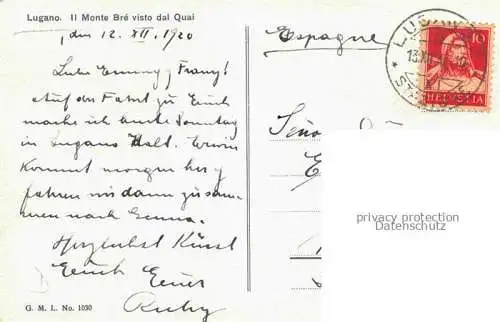 Lugano. Il Monte Bré visto dal Quai
, den 12. XII. 1920
Liebe Emmy, Franz!
Auf der Fahrt zu Euch
mache ich heute Sonntag
in Lugano Halt. Erwin
kommt morgen her &
fahren wir dann zusam-
men nach Genua.
Herzlichst Küsst
Euch Euer
G. M. L. No. 1030
Espagne
LUGANO
13.XII
10
HELVETIA
privacy protection
Datenschutz